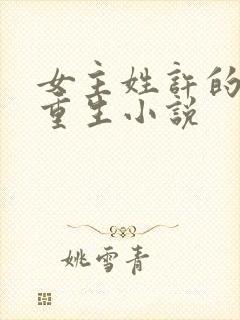 女主姓許的
重生小說
姚雪青